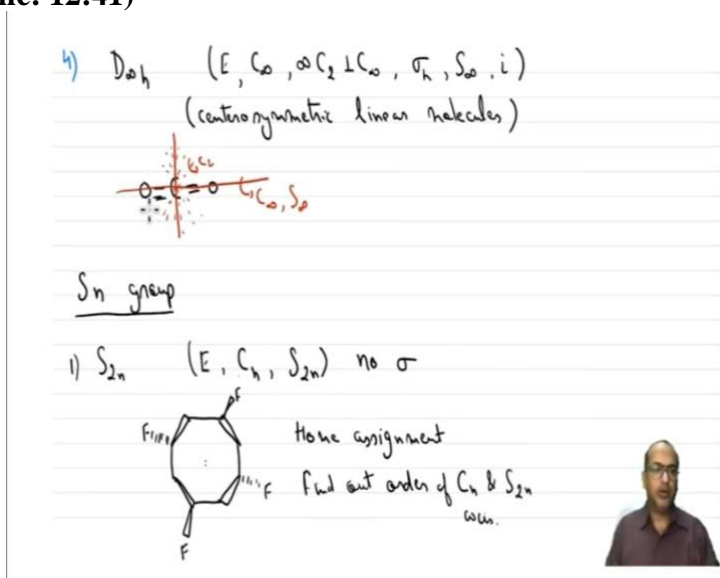 ne: 12:41)
4) D∞h (E, C∞, ∞C₂⊥C∞, σh, S∞, i)
(centerosymmetric linear molecules)
C₂
O=C=O C∞, S∞
Sn group
1) S₂n (E, Cn, S₂n) no σ
F
F Home assignment
F Find out order of Cn & S₂n
axis.
F